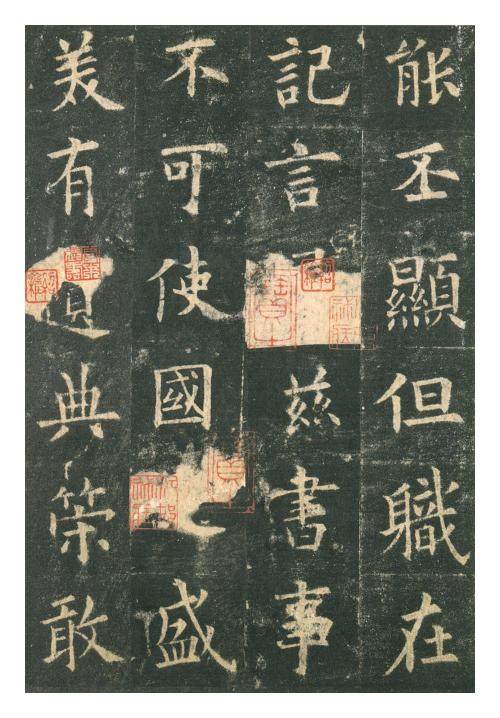 能丕顯但職在
記言茲書事
不可使國盛
美有遺典策敢